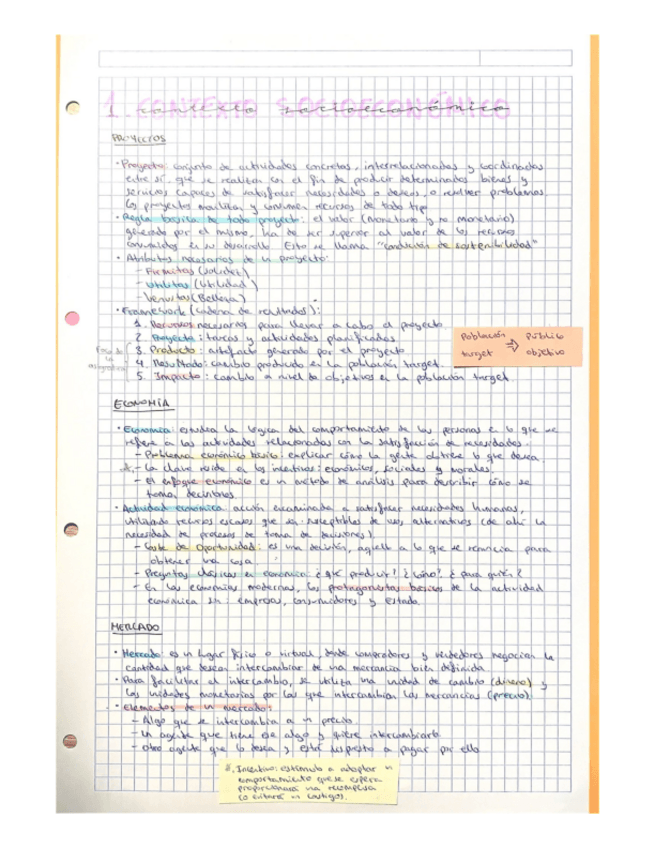 1. CONTEXTO SOCIOECONÓMICO
PROYECTOS
· Proyecto: conjunto de actividades concretas, interrelacionadas y coordinadas
entre sí, que se realizan con el fin de producir determinados bienes y
servicios capaces de satisfacer necesidades o deseos, o resolver problemas.
Los proyectos movilizan y consumen recursos de todo tipo
· Regla básica de todo proyecto: el valor (monetario y no monetario)
generado por el mismo, ha de ser superior al valor de los recursos
consumidos en su desarrollo. Esto se llama "condición de sostenibilidad"
· Atributos necesarios de un proyecto:
- Firmitas (solidez)
- Utilitas (Utilidad)
- Venustas (Belleza)
· Framework (cadena de resultados):
1. Recursos necesarios para llevar a cabo el proyecto
2. Proyecto: tareas y actividades planificadas
3. Producto: artefacto generado por el proyecto
4. Resultado: cambio producido en la población target.
5. Impacto: cambio a nivel de objetivos en la población target.
Población target ⇒ público objetivo
ECONOMÍA
· Economía: estudia la lógica del comportamiento de las personas en lo que se
refiere a las actividades relacionadas con la satisfacción de necesidades.
- Problema económico básico: explicar cómo la gente obtiene lo que desea.
*- La clave reside en los incentivos: económicos, sociales y morales.
- El enfoque económico es un método de análisis para describir cómo se
toman decisiones
· Actividad económica: acción encaminada a satisfacer necesidades humanas,
utilizando recursos escasos que son susceptibles de usos alternativos (de ahí la
necesidad de procesos de toma de decisiones)
- Coste de Oportunidad: es una decisión, aquello a lo que se renuncia para
obtener una cosa
- Preguntas clásicas en economía: ¿qué producir? ¿cómo? ¿para quién?
- En las economías modernas, los protagonistas básicos de la actividad
económica son: empresas, consumidores y estado.
MERCADO
· Mercado: es un lugar físico o virtual, donde compradores y vendedores negocian la
cantidad que desean intercambiar de una mercancía bien definida.
· Para facilitar el intercambio, se utiliza una unidad de cambio (dinero) y
las unidades monetarias por las que intercambian las mercancías (precio).
· Elementos de un mercado:
- Algo que se intercambia a un precio
- Un agente que tiene ese algo y quiere intercambiarlo
- Otro agente que lo desea y está dispuesto a pagar por ello
*. Incentivo: estímulo a adoptar un
comportamiento que se espera
proporcionará una recompensa
(o evitará un castigo).